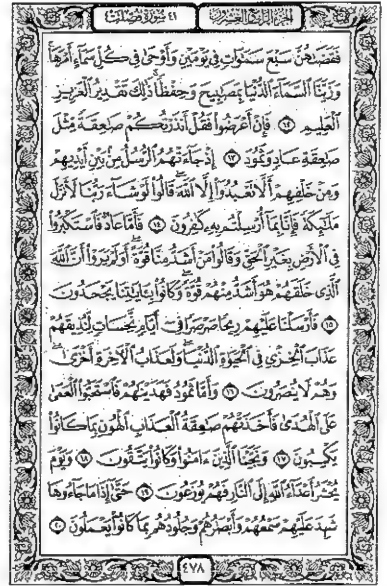 الجزء الرابع والعشرون
٤١ سورة فصلت
فَقَضَىٰهُنَّ سَبْعَ سَمَٰوَاتٍ فِي يَوْمَيْنِ وَأَوْحَىٰ فِي كُلِّ سَمَآءٍ أَمْرَهَا ۚ
وَزَيَّنَّا ٱلسَّمَآءَ ٱلدُّنْيَا بِمَصَٰبِيحَ وَحِفْظًا ۚ ذَٰلِكَ تَقْدِيرُ ٱلْعَزِيزِ
ٱلْعَلِيمِ ١٢ فَإِنْ أَعْرَضُوا۟ فَقُلْ أَنذَرْتُكُمْ صَٰعِقَةً مِّثْلَ
صَٰعِقَةِ عَادٍ وَثَمُودَ ١٣ إِذْ جَآءَتْهُمُ ٱلرُّسُلُ مِنۢ بَيْنِ أَيْدِيهِمْ
وَمِنْ خَلْفِهِمْ أَلَّا تَعْبُدُوٓا۟ إِلَّا ٱللَّهَ ۖ قَالُوا۟ لَوْ شَآءَ رَبُّنَا لَأَنزَلَ
مَلَٰٓئِكَةً فَإِنَّا بِمَآ أُرْسِلْتُم بِهِۦ كَٰفِرُونَ ١٤ فَأَمَّا عَادٌ فَٱسْتَكْبَرُوا۟
فِي ٱلْأَرْضِ بِغَيْرِ ٱلْحَقِّ وَقَالُوا۟ مَنْ أَشَدُّ مِنَّا قُوَّةً ۖ أَوَلَمْ يَرَوْا۟ أَنَّ ٱللَّهَ
ٱلَّذِي خَلَقَهُمْ هُوَ أَشَدُّ مِنْهُمْ قُوَّةً ۖ وَكَانُوا۟ بِـَٔايَٰتِنَا يَجْحَدُونَ
١٥ فَأَرْسَلْنَا عَلَيْهِمْ رِيحًا صَرْصَرًا فِيٓ أَيَّامٍ نَّحِسَاتٍ لِّنُذِيقَهُمْ
عَذَابَ ٱلْخِزْيِ فِي ٱلْحَيَوٰةِ ٱلدُّنْيَا ۖ وَلَعَذَابُ ٱلْـَٔاخِرَةِ أَخْزَىٰ ۖ
وَهُمْ لَا يُنصَرُونَ ١٦ وَأَمَّا ثَمُودُ فَهَدَيْنَٰهُمْ فَٱسْتَحَبُّوا۟ ٱلْعَمَىٰ
عَلَى ٱلْهُدَىٰ فَأَخَذَتْهُمْ صَٰعِقَةُ ٱلْعَذَابِ ٱلْهُونِ بِمَا كَانُوا۟
يَكْسِبُونَ ١٧ وَنَجَّيْنَا ٱلَّذِينَ ءَامَنُوا۟ وَكَانُوا۟ يَتَّقُونَ ١٨ وَيَوْمَ
يُحْشَرُ أَعْدَآءُ ٱللَّهِ إِلَى ٱلنَّارِ فَهُمْ يُوزَعُونَ ١٩ حَتَّىٰٓ إِذَا مَا جَآءُوهَا
شَهِدَ عَلَيْهِمْ سَمْعُهُمْ وَأَبْصَٰرُهُمْ وَجُلُودُهُم بِمَا كَانُوا۟ يَعْمَلُونَ ٢٠
٤٧٨